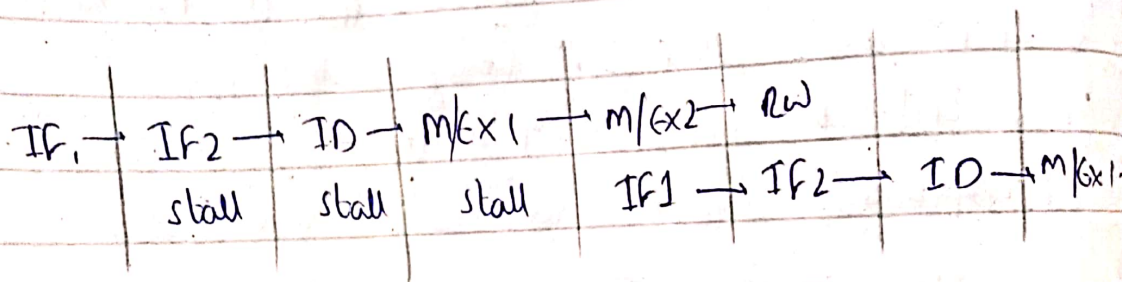 IF1 → IF2 → ID → M/EX1 → M/EX2 → RW
stall stall stall IF1 → IF2 → ID → M/EX1